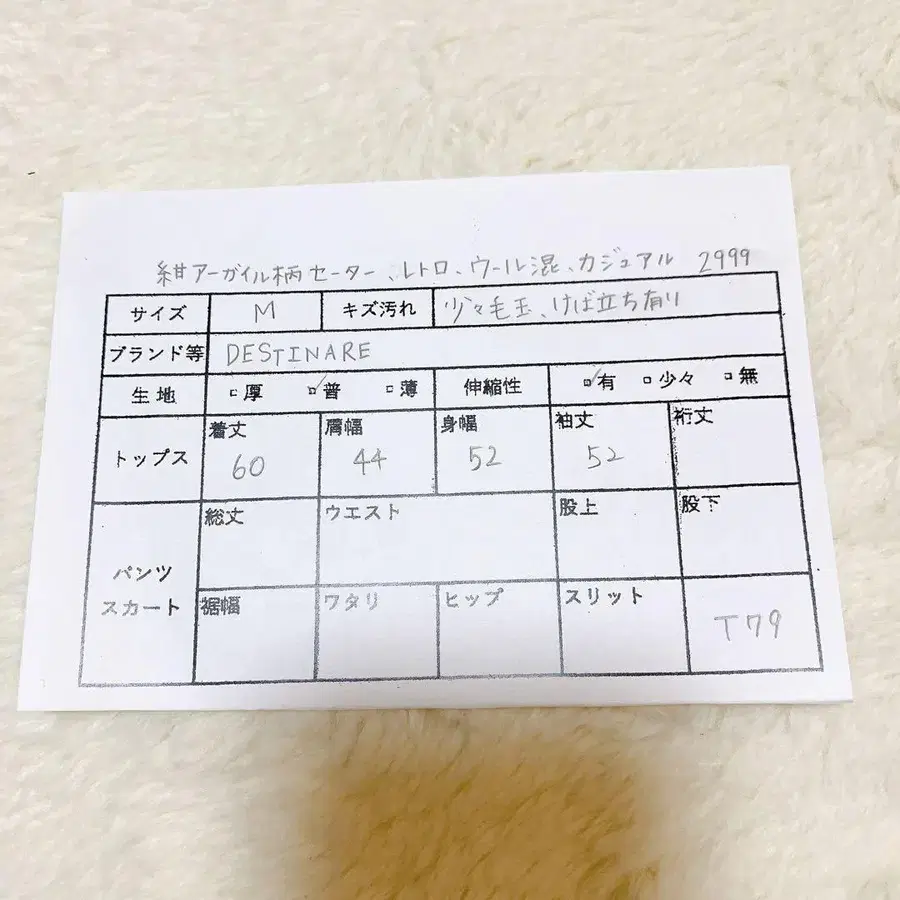 紺アーガイル柄セーター、レトロ、ウール混、カジュアル 2999
サイズ M キズ汚れ 少々毛玉、けば立ち有り
ブランド等 DESTINARE
生地 □厚 ☑普 □薄 伸縮性 ☑有 □少々 □無
トップス 着丈 肩幅 身幅 袖丈 裄丈
60 44 52 52
パンツ
スカート
総丈 ウエスト 股上 股下
裾幅 ワタリ ヒップ スリット
T79